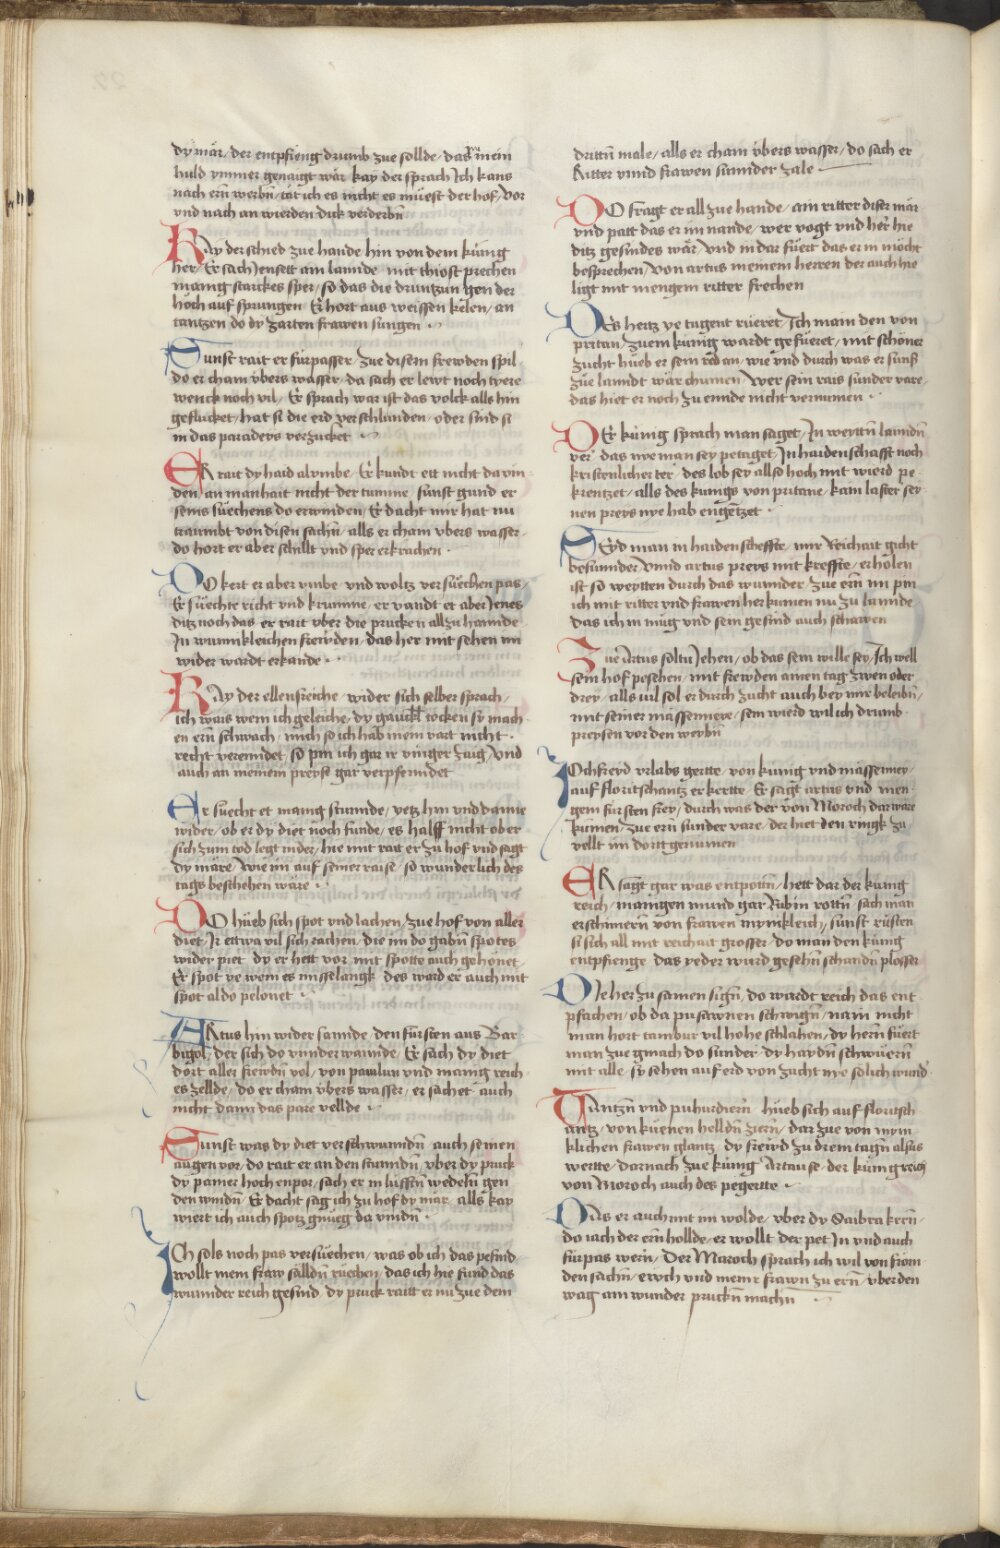 dy mär / der entpfieng drumb zue sollde / das mein
huld ymmer genaigt wär kay der sprach Ich kans
nach ern werbn̄ / tät ich es nicht es müest der hof / vor
vnd nach an wierden dick verderbn̄
Kay der schied zue hande hin von dem künig
her / Er sach Jensett am lannde mit thiost prechen
mänig starckes sper / so das die druntzun gen der
höch auf sprungen Er hort aus weissen kelen / an
tantzen do dy zarten frawen sungen
Sunst rait er fürpasser / zue disem frewden spil
do er cham vbers wasser / da sach er lewt noch tyere
wenck noch vil / Er sprach war ist das volck alls hin
geflucket / hat si die erd verschlunden / oder sind si
in das paradeys verzucket
Er rait dy haid al vmbe / Er kundt ett nicht da vin
den / an manhait nicht der tumme / sunst gund er
seins suechens do erwinden / Er dacht mir hat nu
traumbt von disen sachn̄ / alls er cham vbers wasser
do hort er aber schillt vnd sper erkrachen
Do kert er aber vmbe vnd woltz versüechen pas /
Er süechte richt vnd krumme / er vandt et aber Jenes
ditz noch das er rait vber die prucken all zu hannde
In wunnkleichen frewden / das her mit sehen im
wider wardt erkande
Kay der ellensreiche / wider sich selber sprach /
ich wais wem ich geleiche / dy gauckl tocken sy mach
en ern schwach / mich so ich hab mein vart nicht
recht vermidet / so pin ich gar ir vinger zaig / vnd
auch an meinem preyse gar verpfennidet
Er suecht et manig stunnde / yetz hin vnd danne
wider / ob er dy diet noch funde / es halff nicht ober
sich zum tod legt nider / hie mit rait er zu hof vnd sagt
dy märe / wie im auf seiner raise / so wunderlich des
tags beschehen wäre
Do hüeb sich spot vnd lachen / zue hof von aller
diet / Ir ettwa vil sich rachen / die im do gabn̄ spotes
wider piet dy er hett vor mit spotte auch gehönet
Er spot ye wem es misselangk des ward er auch mit
spot aldo pelonet
Artus hin wider sannde / den fürsten aus Bar
bigol / der sich do vnnder wannde Er sach dy diet
dort aller frewdn̄ vol / von pawlun vnd manig reich
es zellde / do er cham vbers wasser / er sachet auch
nicht dann das pare vellde
Sunst was dy diet verschwundn̄ auch seinen
augen vor / do rait er an den stundn̄ vber dy pruck
dy paner hoch enpor / sach er in lufftn̄ wedeln gen
den windn̄ Er dacht sag ich zu hof dy mär alls kay
wiert ich auch spotz gnueg da vindn̄
Ich sols noch pas versüechen / was ob ich das pefind
wollt mein fraw sälldn̄ rüechen / das ich hie fund das
wunnder reich gesind dy pruck raitt er nu zue dem
drittn̄ male / alls er cham vbers wasser / do sach er
Ritter vnnd frawen sunnder zale
Do fragt er all zue hande / ain ritter diser mär
vnd patt das er im nande / wer vogt vnd her hie
ditz gesindes wär / vnd in dar fuert das er in möcht
besprechen / von artus meinem herren der auch hie
ligt mit mengem ritter frechen
Des hertz ye tugent rüeret / Ich main den von
pritan / zuem kunig wardt gefüeret / mit schöner
zucht hueb er sein red an / wie vnd durch was er sunst
zue lanndt wär chumen / Wer sein rais sunder vare
das hiet er noch zu ennde nicht vernumen
Der künig sprach man saget / In weyttn̄ lanndn̄
ver das nye man sey petaget / In haidenschafft noch
kristenlicher ter des lob sey allso hoch mit wierd pe
krentzet / alls des kunigs von pritane / kain laster sey
nen preys nye hab engetzet
Seyd man in haidenscheffte / mir Reichait gicht
besunnder / Vnnd artus preys mit kreffte / erholen
ist so weytten durch das wunnder / zue ern im pin
ich mit ritter vnd frawen her kumen nu zu lannde
das ich in mug vnd sein gesind auch schawen
Zue Artus soltu Jehen / ob das sein wille sey / Ich well
sein hof pesehen / mit frewden ainen tag zwen oder
drey / alls vil sol er durch zucht auch bey mir beleibn̄ /
mit seiner massenneye / sein wierd wil ich drumb
preysen vor den weybn̄
Jochfreyd vrlabs gertte / von kunig vnd massenney /
auf floritschantz er kertte Er sagt artus vnd men
gem fursten frey / durch was der von Moroch dar ware
kumen / zue ern sunder vare / der hiet den ringk zu
vellt im dortt genumen
Er sagt gar was enpottn̄ / hett dar der kunig
reich / maingen mund gar Rubin rottn̄ / sach man
erschinern von frawen mynnkleich / sunst rüsten
si sich all mit reichait grosser / do man den künig
entpfienge das yeder wurd gesehn̄ schandn̄ plosser
Die her zu samen sign̄ / do wardt reich das ent
pfachen / ob da pusawnen schwign̄ / nain nicht
man hort tambur vil hohe schlahen / dy hern̄ fuert
man zue gmach do sunder / dy haydn̄ schwüern
mit alle / sy sehen auf erd von zucht nye solich wund'
Tantzn̄ vnd puhurdiern̄ hueb sich auf floritsch
antz / von kuenen helldn̄ ziern̄ / dar zue von mynn
klichen frawen glantz / dy frewd zu drein tagn̄ alsus
wertte / darnach zue künig Artause / der kunig reich
von Moroch auch des pegertte
Das er auch mit im wolde / vber dy Saibra kern̄
do iach der ern hollde / er wollt der pet In vnd auch
furpas wern̄ / Der Maroch sprach ich wil von from
den sachn̄ / ewch vnd meinr frawn zu ern̄ / vber den
wag ain wunder pruckn̄ machn̄